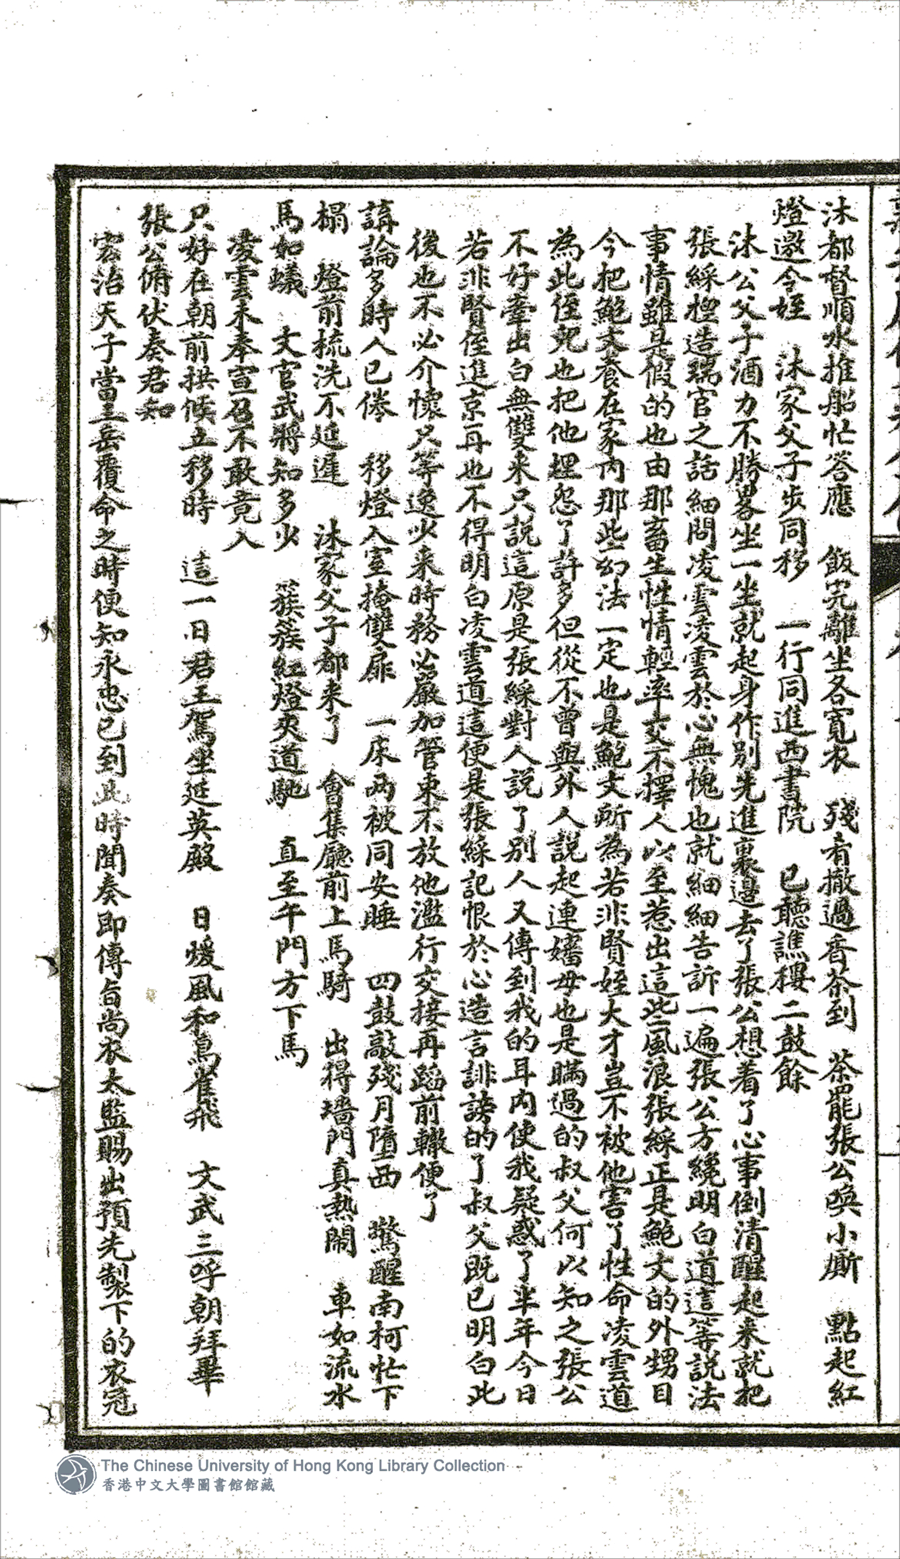 沐都督順水推船忙答應　飯完離坐各寬衣　殘肴撤過香茶到　茶罷張公喚小廝　點起紅
燈邀令姪　沐家父子步同移　一行同進西書院　已聽譙樓二鼓餘
沐公父子酒力不勝畧坐一坐就起身作别先進裏邊去了張公想着了心事倒清醒起來就把
張綵捏造瑞官之話細問凌雲凌雲於心無愧也就細細告訴一遍張公方纔明白道這等說法
事情雖是假的也由那畜生性情輕率交不擇人以至惹出這些風浪張綵正是鮑文的外甥目
今把鮑文養在家內那些幻法一定也是鮑文所為若非賢姪大才豈不被他害了性命凌雲道
為此侄兒也把他埋怨了許多但從不曾與外人說起連嬸母也是瞞過的叔父何以知之張公
不好牽出白無雙來只說這原是張綵對人說了別人又傳到我的耳內使我疑惑了半年今日
若非賢侄進京再也不得明白凌雲道這便是張綵記恨於心造言誹謗的了叔父既已明白此
後也不必介懷只等逸少來時務必嚴加管束不放他濫行交接再蹈前轍便了
講論多時人已倦　移燈入室掩雙扉　一床兩被同安睡　四鼓敲殘月墮西　驚醒南柯忙下
榻　燈前梳洗不延遲　沐家父子都來了　會集廳前上馬騎　出得墻門真熱鬧　車如流水
馬如蟻　文官武將知多少　簇簇紅燈夾道馳　直至午門方下馬
凌雲未奉宣召不敢竟入
只好在朝前拱候立移時　這一日君王駕坐延英殿　日煖風和鳥雀飛　文武三呼朝拜畢
張公俯伏奏君知
宏治天子當王岳覆命之時便知永忠已到此時聞奏即傳旨尚衣太監賜出預先製下的衣冠
The Chinese University of Hong Kong Library Collection
香港中文大學圖書館館藏